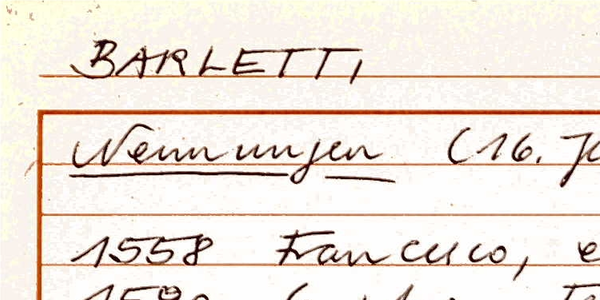 BARLETTI
Nennungen (16. J
1558 Francesco, e